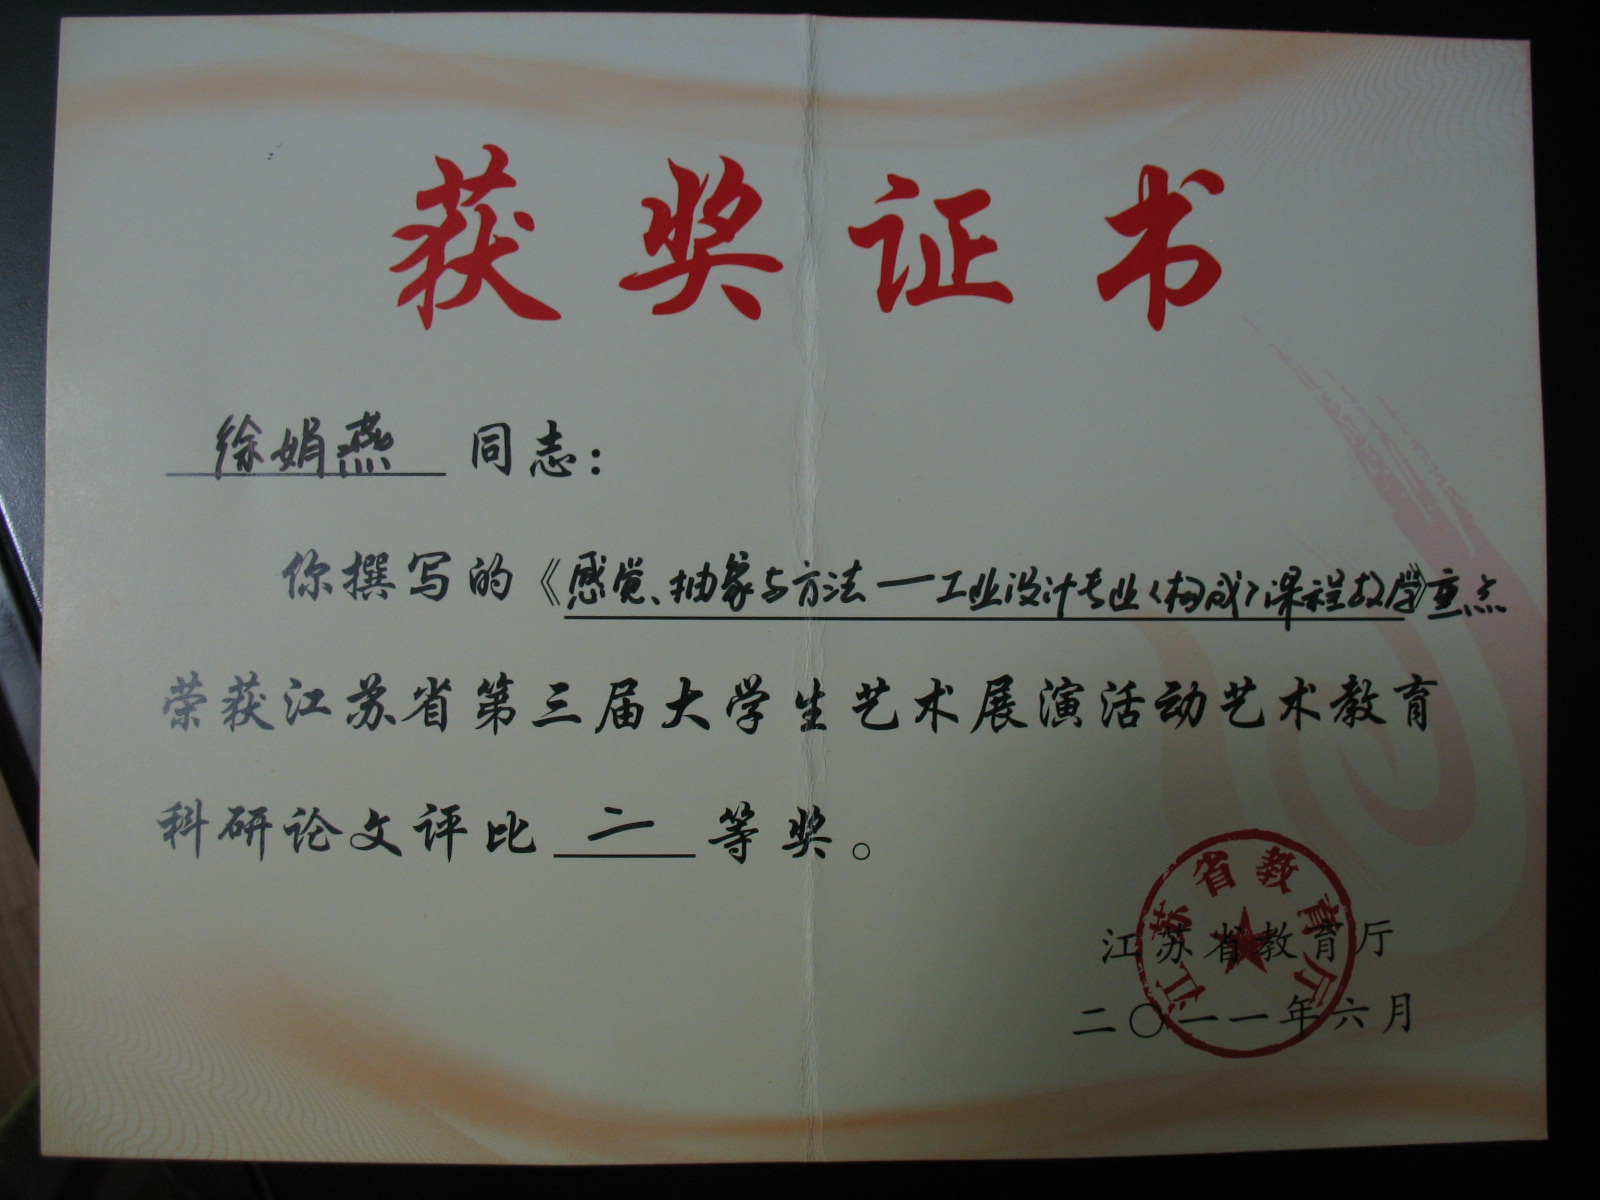 获奖证书
徐娟燕 同志：
你撰写的《感觉、抽象与方法—工业设计专业〈构成〉课程教学》重点
荣获江苏省第三届大学生艺术展演活动艺术教育
科研论文评比 二 等奖。
江苏省教育厅
江苏省教育厅
二〇一一年六月